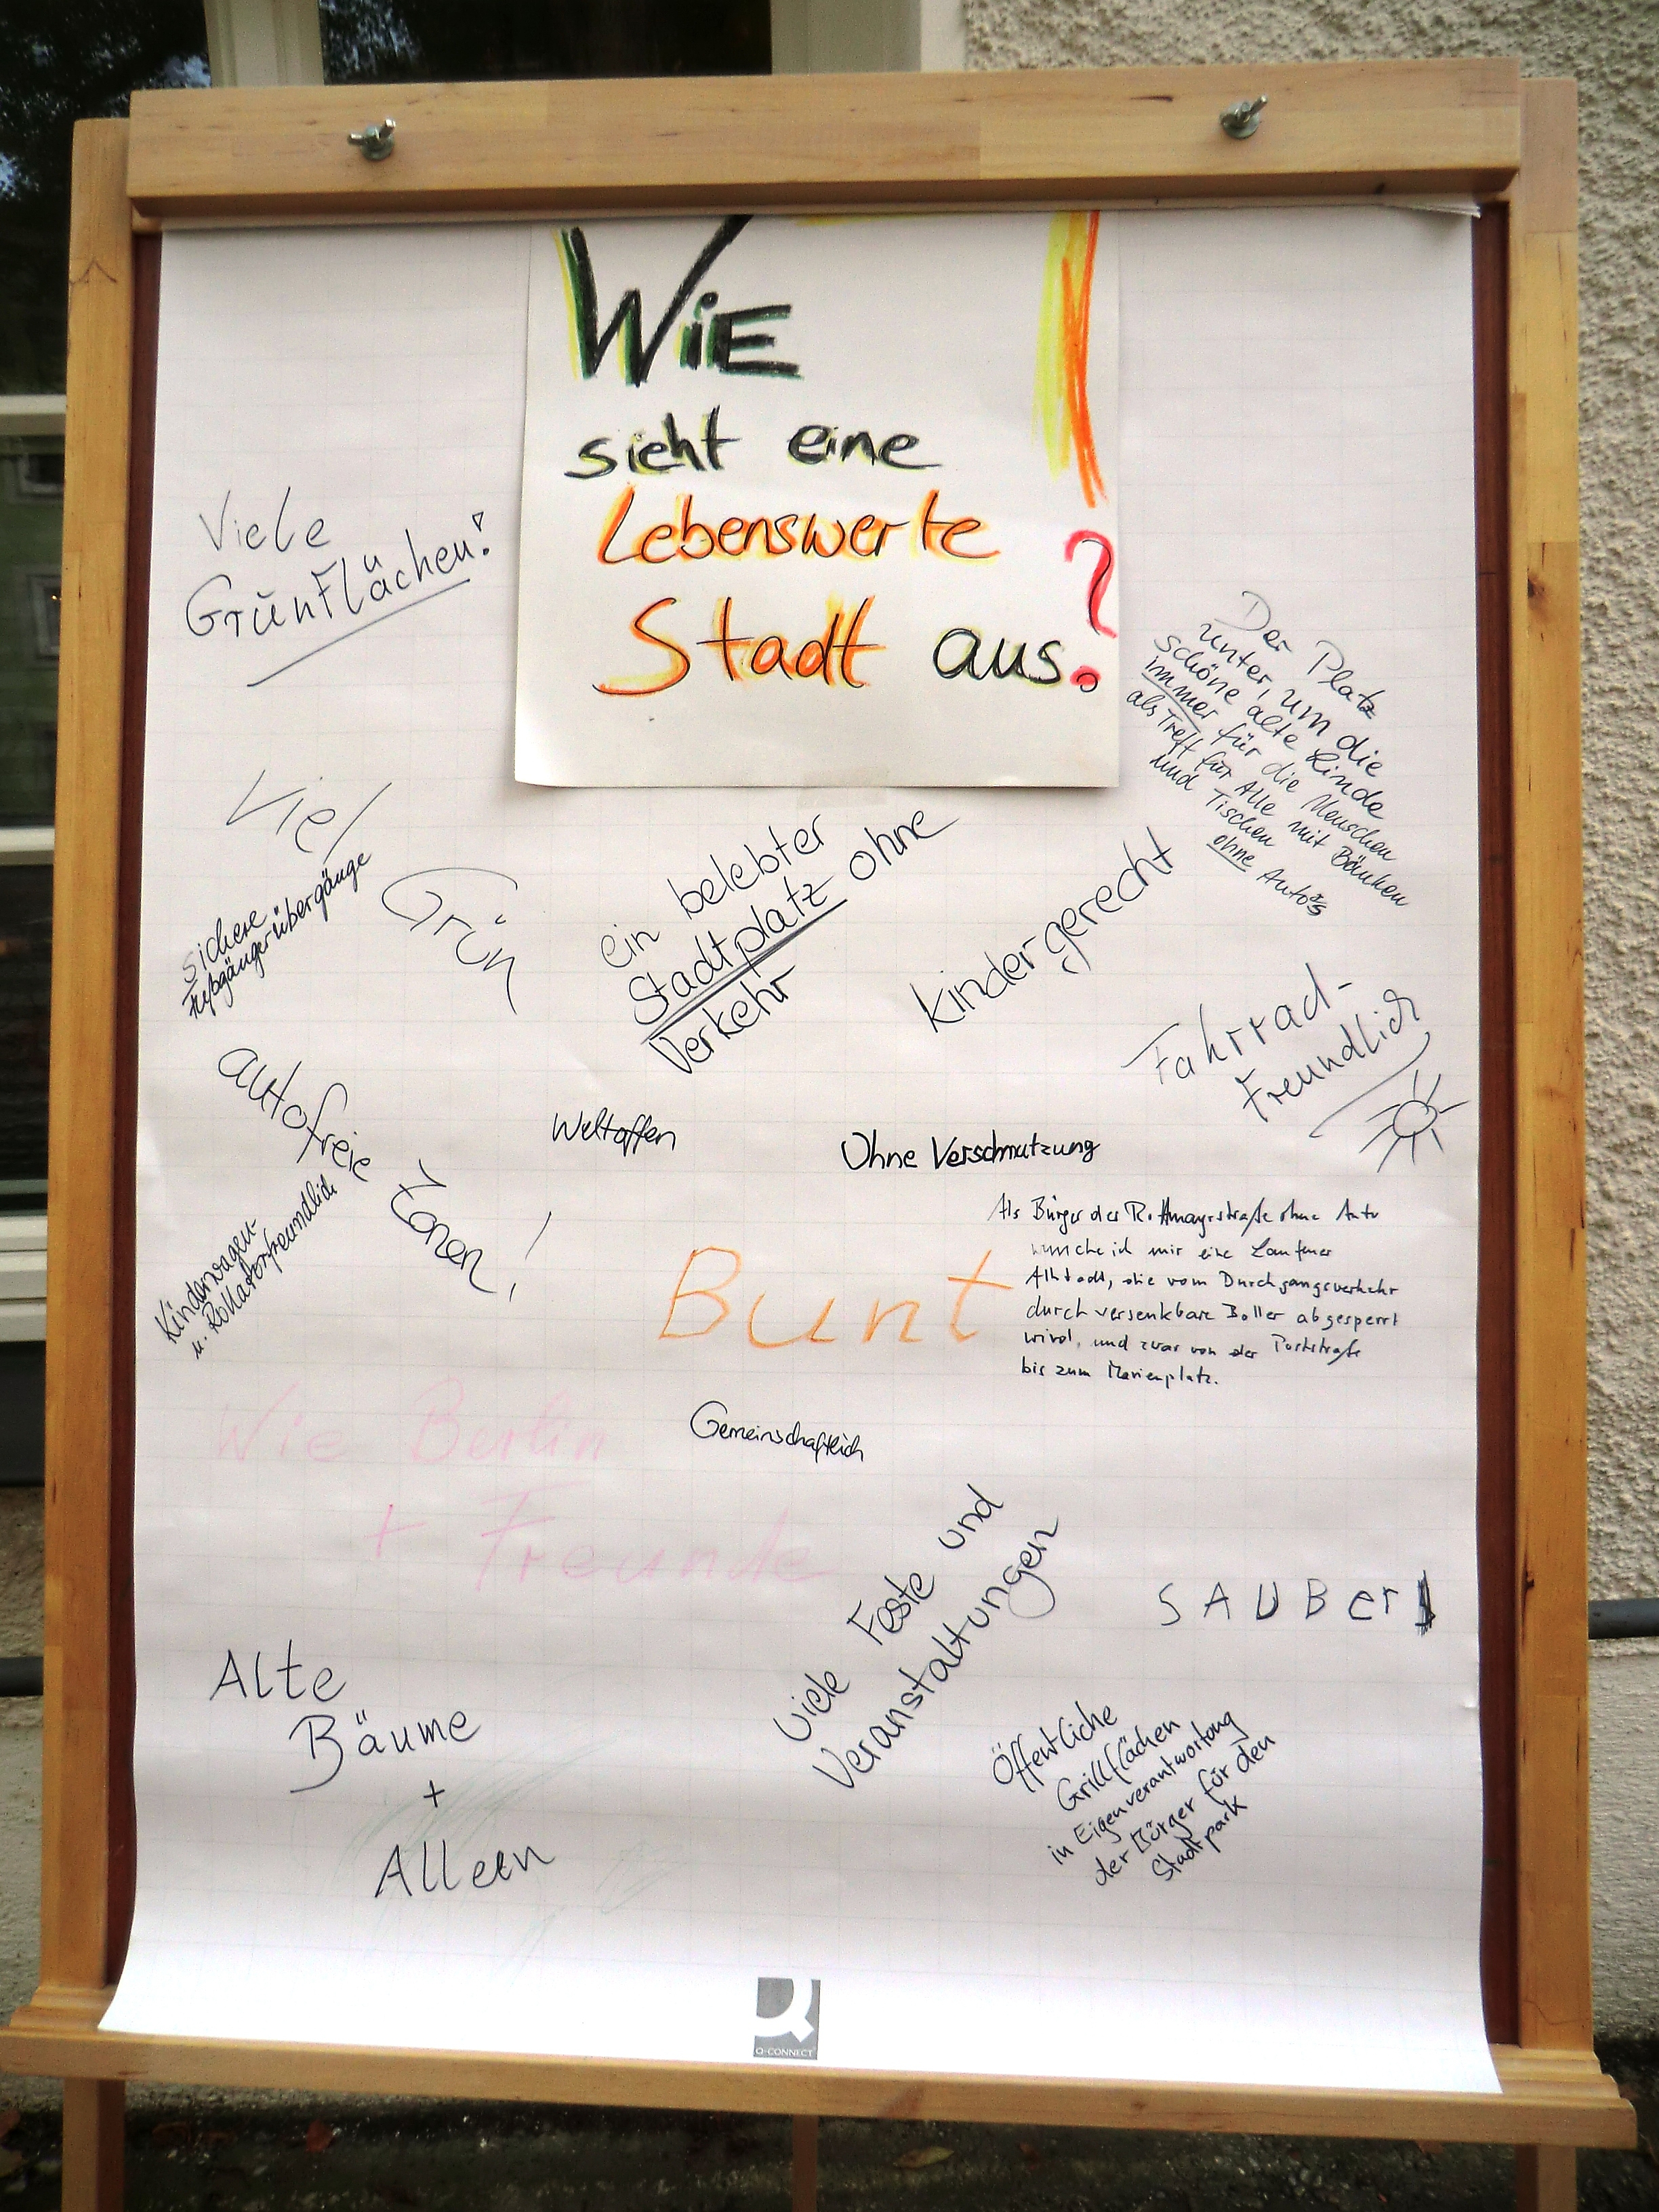 WiE
sieht eine
Lebenswerte
Stadt aus?
Viele
Grünflächen!
Der Platz
unter, um die
schöne alte Linde
immer für die Menschen
als Treff für Alle mit Bänken
und Tischen
ohne Autos
Viel
Grün
sichere
Fußgängerübergänge
ein belebter
Stadtplatz ohne
Verkehr
kindergerecht
Fahrrad-
Freundlich
autofreie
Zonen!
Weltoffen
Ohne Verschmutzung
Kinderwagen-
u. Rollatorfreundlich
Bunt
Als Bürger der Rottmayrstraße ohne Auto
wünsche ich mir eine Laufener
Altstadt, die vom Durchgangsverkehr
durch versenkbare Boller abgesperrt
wird, und zwar von der Poststraße
bis zum Marienplatz.
Wie Berlin
+ Freunde
Gemeinschaftlich
Viele Feste und
Veranstaltungen
SAUBer!
Alte
Bäume
+
Alleen
Öffentliche
Grillflächen
in Eigenverantwortung
der Bürger für den
Stadtpark
Q-CONNECT